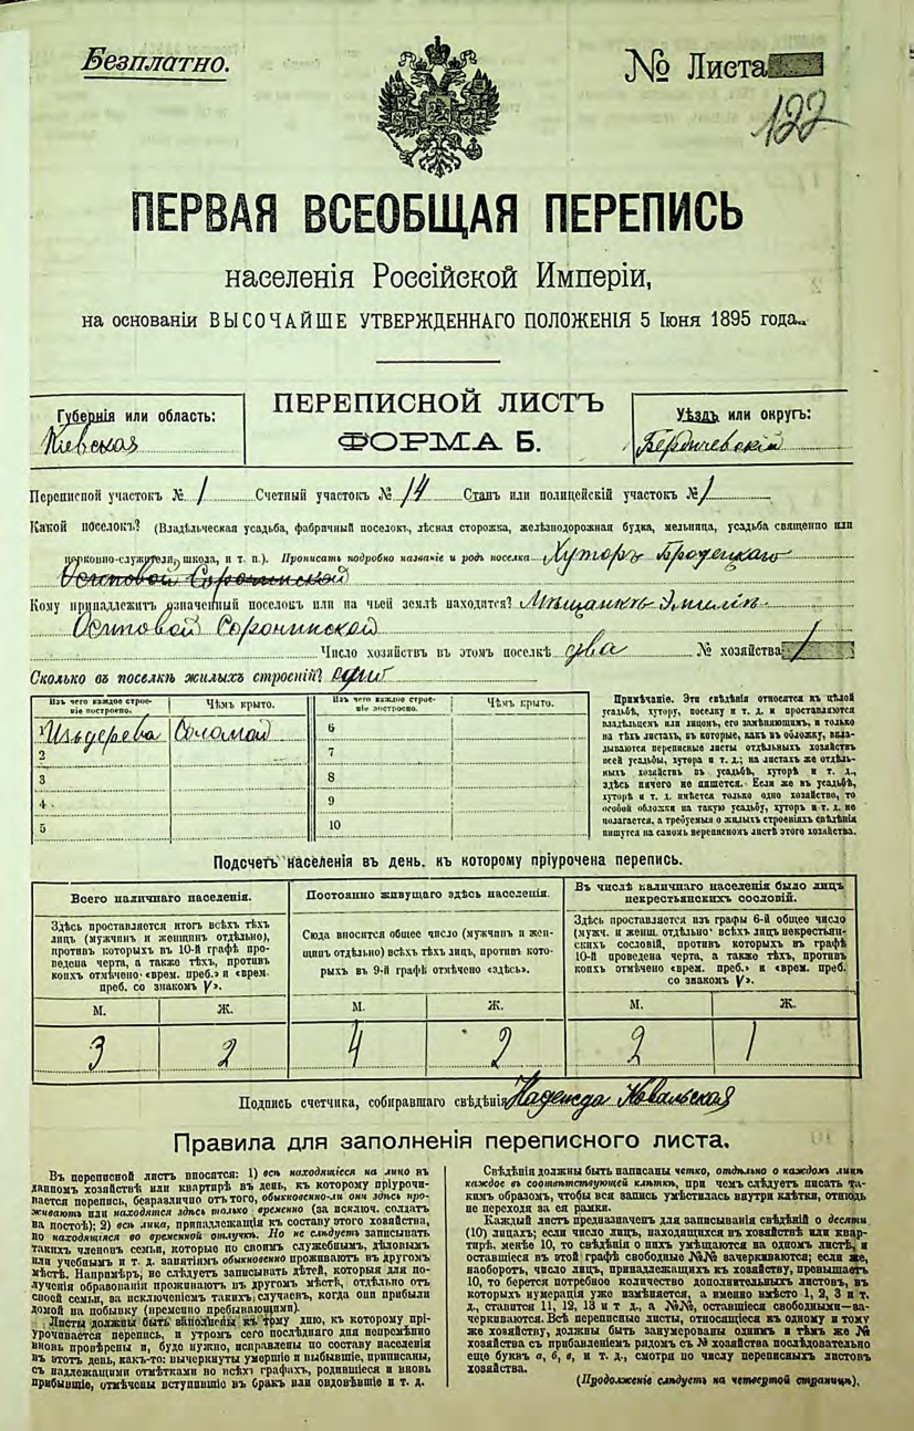 Безплатно.
№ Листа
122
ПЕРВАЯ ВСЕОБЩАЯ ПЕРЕПИСЬ
населенія Россійской Имперіи,
на основаніи ВЫСОЧАЙШЕ УТВЕРЖДЕННАГО ПОЛОЖЕНІЯ 5 Іюня 1895 года.
Губернія или область:
Кіевская
ПЕРЕПИСНОЙ ЛИСТЪ
ФОРМА Б.
Уѣздъ или округъ:
Бердичевскій
Переписной участокъ № 1 Счетный участокъ № 14 Станъ или полицейскій участокъ № 1
Какой поселокъ? (Владѣльческая усадьба, фабричный поселокъ, лѣсная сторожка, желѣзнодорожная будка, мельница, усадьба священно или
церковно-служителя, школа, и т. п.). Прописать подробно названіе и родъ поселка Хуторъ Бродецкаго
Осиповой Сорочинской
Кому принадлежитъ означенный поселокъ или на чьей землѣ находится? Мѣщанкѣ Эмиліи
Осиповой Сорочинской
Число хозяйствъ въ этомъ поселкѣ два № хозяйства 1
Сколько въ поселкѣ жилыхъ строеній? одно
Изъ чего каждое строеніе построено. Чѣмъ крыто. Изъ чего каждое строеніе построено. Чѣмъ крыто.
1 Изъ дерева Соломой 6
2 7
3 8
4 9
5 10
Примѣчаніе. Эти свѣдѣнія относятся къ цѣлой
усадьбѣ, хутору, поселку и т. д. и проставляются
владѣльцемъ или лицомъ, его замѣняющимъ, и только
на тѣхъ листахъ, въ которые, какъ въ обложку, вкла-
дываются переписные листы отдѣльныхъ хозяйствъ
всей усадьбы, хутора и т. д.; на листахъ же отдѣль-
ныхъ хозяйствъ въ усадьбѣ, хуторѣ и т. д.,
здѣсь ничего не пишется. Если же въ усадьбѣ,
хуторѣ и т. д. имѣется только одно хозяйство, то
особой обложки на такую усадьбу, хуторъ и т. д. не
полагается, а требуемыя о жилыхъ строеніяхъ свѣдѣнія
пишутся на самомъ переписномъ листѣ этого хозяйства.
Подсчетъ населенія въ день, къ которому пріурочена перепись.
Всего наличнаго населенія.
Здѣсь проставляется итогъ всѣхъ тѣхъ
лицъ (мужчинъ и женщинъ отдѣльно),
противъ которыхъ въ 10-й графѣ про-
ведена черта, а также тѣхъ, противъ
коихъ отмѣчено «врем. преб.» и «врем.
преб. со знакомъ V».
М. Ж.
3 2
Постоянно живущаго здѣсь населенія.
Сюда вносится общее число (мужчинъ и жен-
щинъ отдѣльно) всѣхъ тѣхъ лицъ, противъ кото-
рыхъ въ 9-й графѣ отмѣчено «здѣсь».
М. Ж.
4 2
Въ числѣ наличнаго населенія было лицъ
некрестьянскихъ сословій.
Здѣсь проставляется изъ графы 6-й общее число
(мужч. и женщ. отдѣльно) всѣхъ лицъ некрестьян-
скихъ сословій, противъ которыхъ въ графѣ
10-й проведена черта, а также тѣхъ, противъ
коихъ отмѣчено «врем. преб.» и «врем. преб.
со знакомъ V».
М. Ж.
2 1
Подпись счетчика, собиравшаго свѣдѣнія Надежда Ковальская
Правила для заполненія переписного листа.
Въ переписной листъ вносятся: 1) всѣ находящіеся на лицо въ
данномъ хозяйствѣ или квартирѣ въ день, къ которому пріурочи-
вается перепись, безразлично отъ того, обыкновенно-ли они здѣсь про-
живаютъ или находятся здѣсь только временно (за исключ. солдатъ
на постоѣ); 2) всѣ лица, принадлежащія къ составу этого хозяйства,
но находящіеся во временной отлучкѣ. Но не слѣдуетъ записывать
такихъ членовъ семьи, которые по своимъ служебнымъ, дѣловымъ
или учебнымъ и т. д. занятіямъ обыкновенно проживаютъ въ другомъ
мѣстѣ. Напримѣръ, не слѣдуетъ записывать дѣтей, которыя для по-
лученія образованія проживаютъ въ другомъ мѣстѣ, отдѣльно отъ
своей семьи, за исключеніемъ такихъ случаевъ, когда они прибыли
домой на побывку (временно пребывающими).
Листы должны быть заполнены къ тому дню, къ которому прі-
урочивается перепись, и утромъ сего послѣдняго дня непремѣнно
вновь провѣрены и, буде нужно, исправлены по составу населенія
въ этотъ день, какъ-то: вычеркнуты умершіе и выбывшіе, приписаны,
съ надлежащими отмѣтками во всѣхъ графахъ, родившіеся и вновь
прибывшіе, отмѣчены вступившіе въ бракъ или овдовѣвшіе и т. д.
Свѣдѣнія должны быть написаны четко, отдѣльно о каждомъ лицѣ
каждое въ соотвѣтствующей клѣткѣ, при чемъ слѣдуетъ писать та-
кимъ образомъ, чтобы вся запись умѣстилась внутри клѣтки, отнюдь
не переходя за ея рамки.
Каждый листъ предназначенъ для записыванія свѣдѣній о десяти
(10) лицахъ; если число лицъ, находящихся въ хозяйствѣ или квар-
тирѣ, менѣе 10, то свѣдѣнія о нихъ умѣщаются на одномъ листѣ, и
оставшіеся въ этой графѣ свободные №№ вачеркиваются; если же,
наоборотъ, число лицъ, принадлежащихъ къ хозяйству, превышаетъ
10, то берется потребное количество дополнительныхъ листовъ, въ
которыхъ нумерація уже измѣняется, а именно вмѣсто 1, 2, 3 и т.
д., ставится 11, 12, 13 и т д., а №№, оставшіеся свободными—за-
черкиваются. Всѣ переписные листы, относящіеся къ одному и тому
же хозяйству, должны быть занумерованы однимъ и тѣмъ же №
хозяйства съ прибавленіемъ рядомъ съ № хозяйства послѣдовательно
еще буквъ а, б, в, и т. д., смотря по числу переписныхъ листовъ
хозяйства.
(Продолженіе слѣдуетъ на четвертой страницѣ).